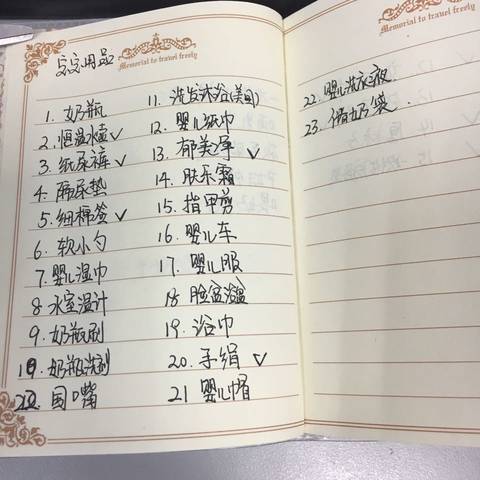 宝宝用品
Memorial to travel freely
1. 奶瓶
2. 恒温水壶 ✓
3. 纸尿裤 ✓
4. 隔尿垫
5. 细棉签 ✓
6. 软小勺
7. 婴儿湿巾
8 水室温计
9. 奶瓶刷
10. 奶瓶洗剂
围嘴
11. 洗发沐浴(美国)
12. 婴儿纸巾
13. 郁美净 ✓
14. 肤乐霜
15. 指甲剪
16. 婴儿车
17. 婴儿服
18 脸盆浴盆
19. 浴巾
20. 手绢 ✓
21 婴儿帽
Memorial to travel freely
22. 婴儿洗衣液
23. 储奶袋.